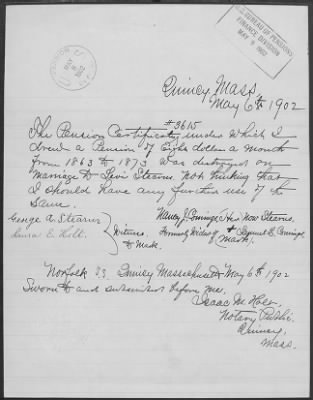 U.S. BUREAU OF PENSIONS
FINANCE DIVISION
MAY 9 1902
MAY
1902
Quincy, Mass.
May 6th 1902
#3615
The Pension Certificate under which I
drew a Pension of Eight dollars a month
from 1863 to 1873 was destroyed on
Marriage to Levi Stearns not thinking that
I should have any further use of the
same.
George A. Stearns
Laura E.
Witness
to Mark
Nancy J. her Now Stearns
Formerly Widow of + Samuel E.
Mark
Norfolk SS. Quincy Massachusetts May 6th 1902
Sworn to and subscribed before me.
Isaac M. Holt
Notary Public.
Quincy,
Mass.